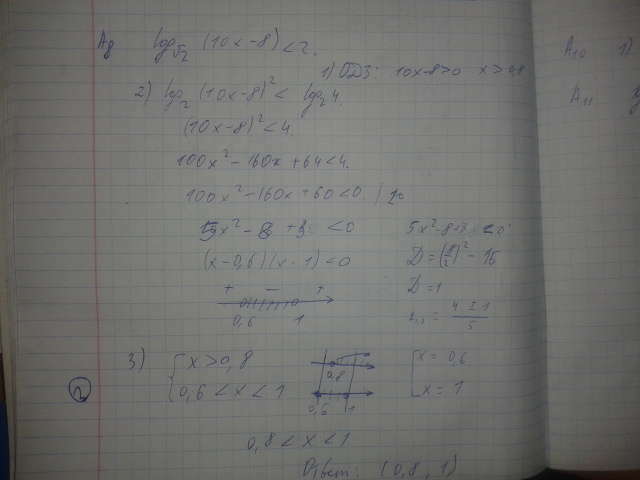 A8 log√2 (10x-8) < 2.
1) ОДЗ: 10x-8>0 x > 0,8
2) log2 (10x-8)² < log2 4.
(10x-8)² < 4.
100x² - 160x + 64 < 4.
100x² - 160x + 60 < 0 | 20
5x² - 8 + 3 < 0
5x² - 8x+3 < 0
(x-0,6)(x-1) < 0
D = (8/2)² - 15
+ - +
0,6 1
D = 1
4 ± 1
5
3) { x > 0,8
0,6 < x < 1
0,8
0,6 1
[ x = 0,6
x = 1
2
0,8 < x < 1
Ответ: (0,8, 1)
A10 1)
A11